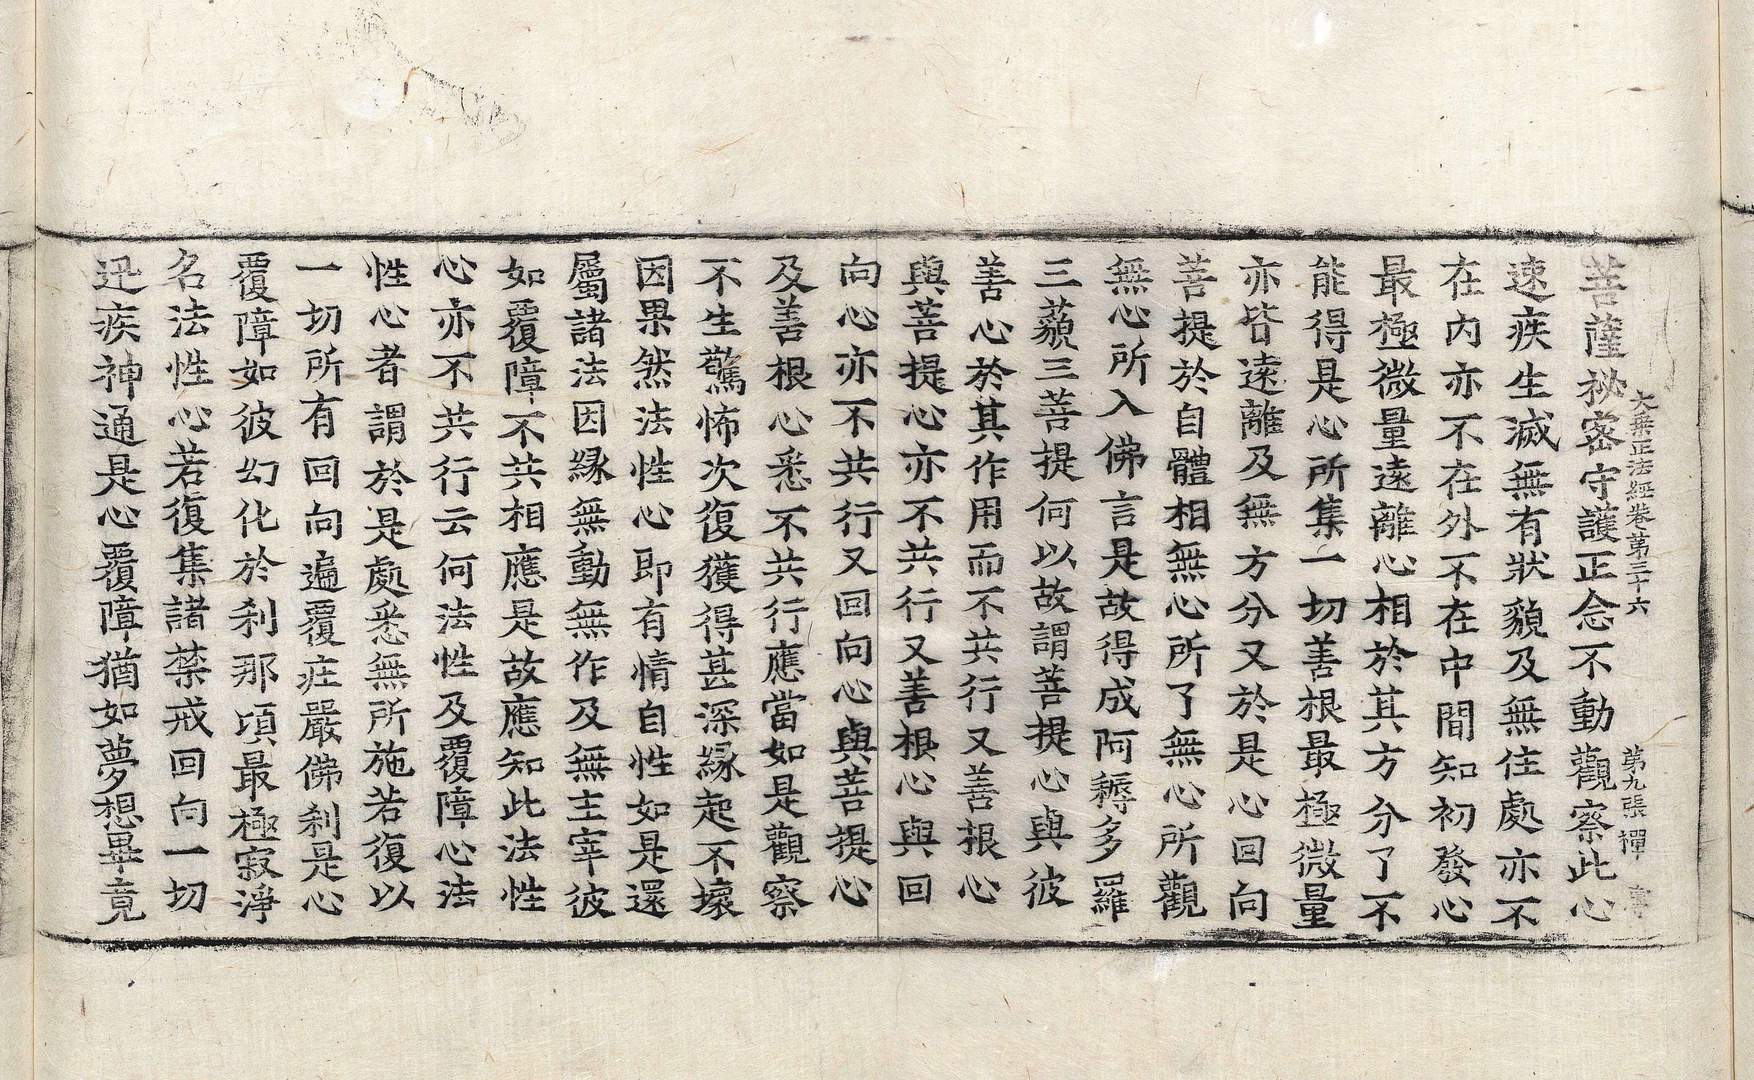 大乗正法經卷第三十六 第九張 禪
菩薩祕密守護正念不動觀察此心
速疾生滅無有狀貌及無住處亦不
在内亦不在外不在中間知初發心
最極微量遠離心相於其方分了不
能得是心所集一切善根最極微量
亦皆遠離及無方分又於是心回向
菩提於自體相無心所了無心所觀
無心所入佛言是故得成阿耨多羅
三藐三菩提何以故謂菩提心與彼
善心於其作用而不共行又善根心
與菩提心亦不共行又善根心與回
向心亦不共行又回向心與菩提心
及善根心悉不共行應當如是觀察
不生驚怖次復獲得甚深緣起不壞
因果然法性心即有情自性如是還
屬諸法因緣無動無作及無主宰彼
如覆障不共相應是故應知此法性
心亦不共行云何法性及覆障心法
性心者謂於是處悉無所施若復以
一切所有回向遍覆莊嚴佛刹是心
覆障如彼幻化於刹那頃最極寂淨
名法性心若復集諸禁戒回向一切
迅疾神通是心覆障猶如夢想畢竟